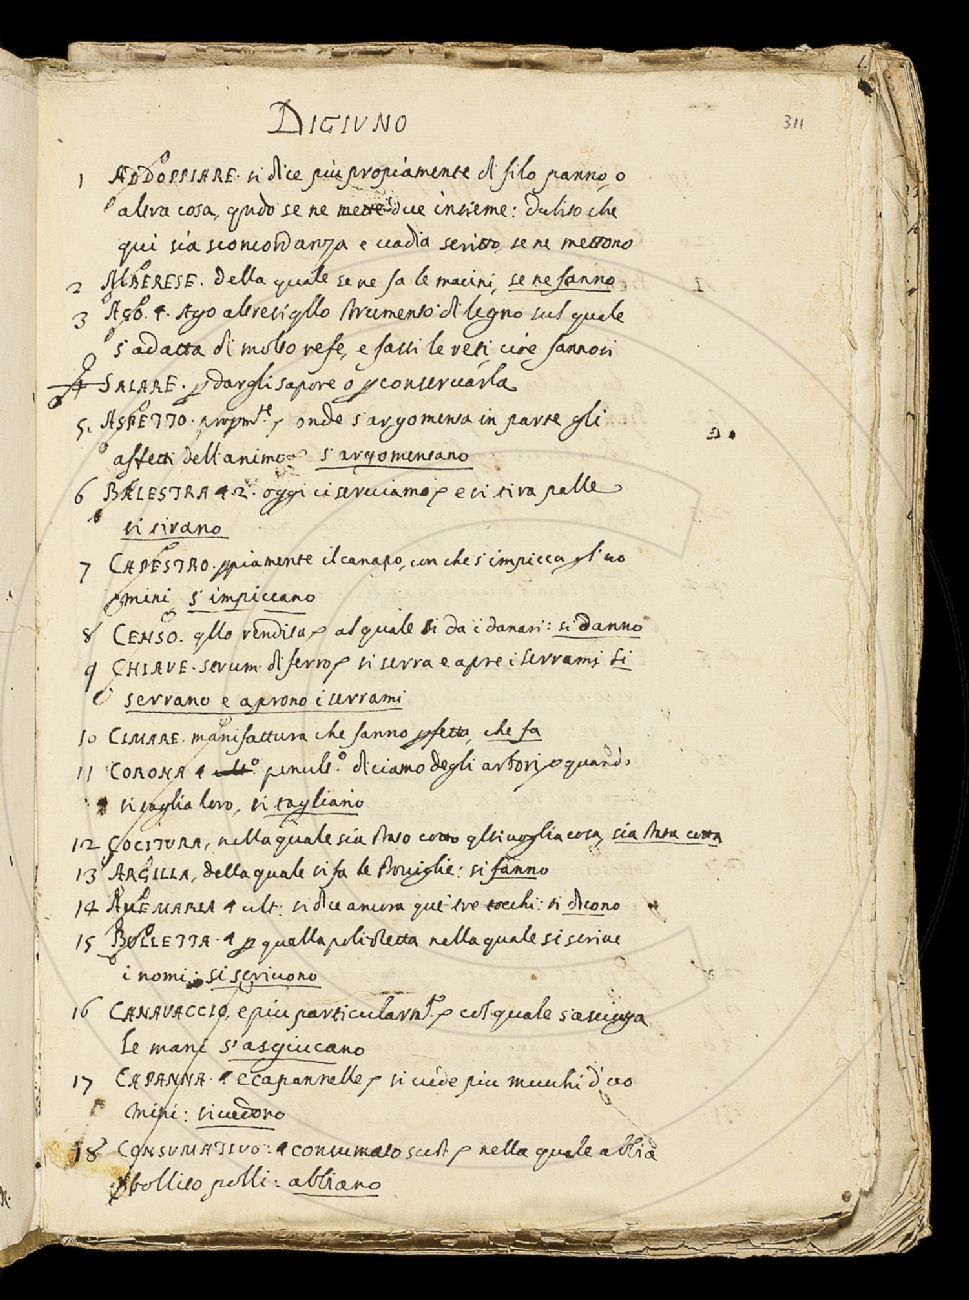 DIGIUNO
311
1 ADDOPPIARE. si dice più propiamente di filo panno, o
altra cosa, qndo se ne mette due insieme: dubito che
qui sia sconcordanza e vadia scritto, se ne mettono
2 ALBERESE. della quale se ne fa le macini, se ne fanno
3 AGO. 4. Ago altresi qllo strumento di legno sul quale
s'adatta di molto refe, e fassi le reti, cioè fannosi
4 SALARE. p dargli sapore o p conservarla
5. ASPETTO. propm.te, onde s'argomenta in parte gli
affetti dell'animo s'argomentano
2.
6 BALESTRA 4 2. oggi ci serviamo e si tira palle
si tirano
7 CAPESTRO. ppiamente il canapo, con che s'impicca gl'uo
mini, s'impiccano
8 CENSO. qllo rendita, al quale si da i danari: si danno
9 CHIAVE. strum. di ferro, si serra e apre i serrami si
serrano e aprono i serrami
10 CIMARE. manifattura che fanno pfetta, che fa
11 CORONA 4 penult.o diciamo degli arbori, quando
si taglia loro, si tagliano
12 COCITURA, nella quale sia stato cotto qlsivoglia cosa, sia stata cotta
13 ARGILLA, della quale si fa le stoviglie: si fanno
14 AVEMARIA 4 ult: si dice ancora que tre tocchi: si dicono
15 BULLETTA. 4 p quella polizzetta nella quale si scrive
i nomi: si scrivono
16 CANAVACCIO, e piu particolarm.te col quale s'asciuga
le mani s'asciucano
17 CAPANNA. 4 e capannelle, si vede piu mucchi d'uo
mini: si vedono
18 CONSUMATIVO: 4 consumato sust nella quale abbia
bollito polli: abbiano